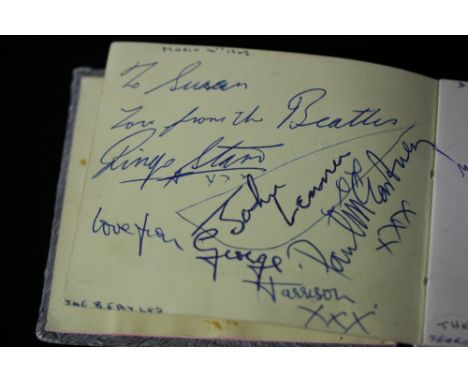 MARCH
To Susan
Love from the Beatles
Ringo Starr
xx
John Lennon
Paul McCartney
xxx
love from George
Harrison
xxx
THE BEATLES
THE